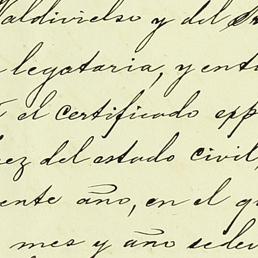 Valdivielso y del
legataria, y ent
el certificado exp
ez del estado civil,
ente año, en el qu
mes y año se lev